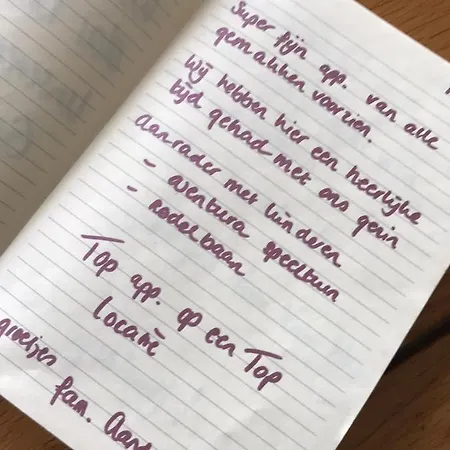 Super fijn app. van alle
gemakken voorzien.
Wij hebben hier een heerlijke
tijd gehad met ons gezin
Aanrader met kinderen
- aventura speeltuin
- rodelbaan
Top app. op een Top
locatie
groetjes
fam.